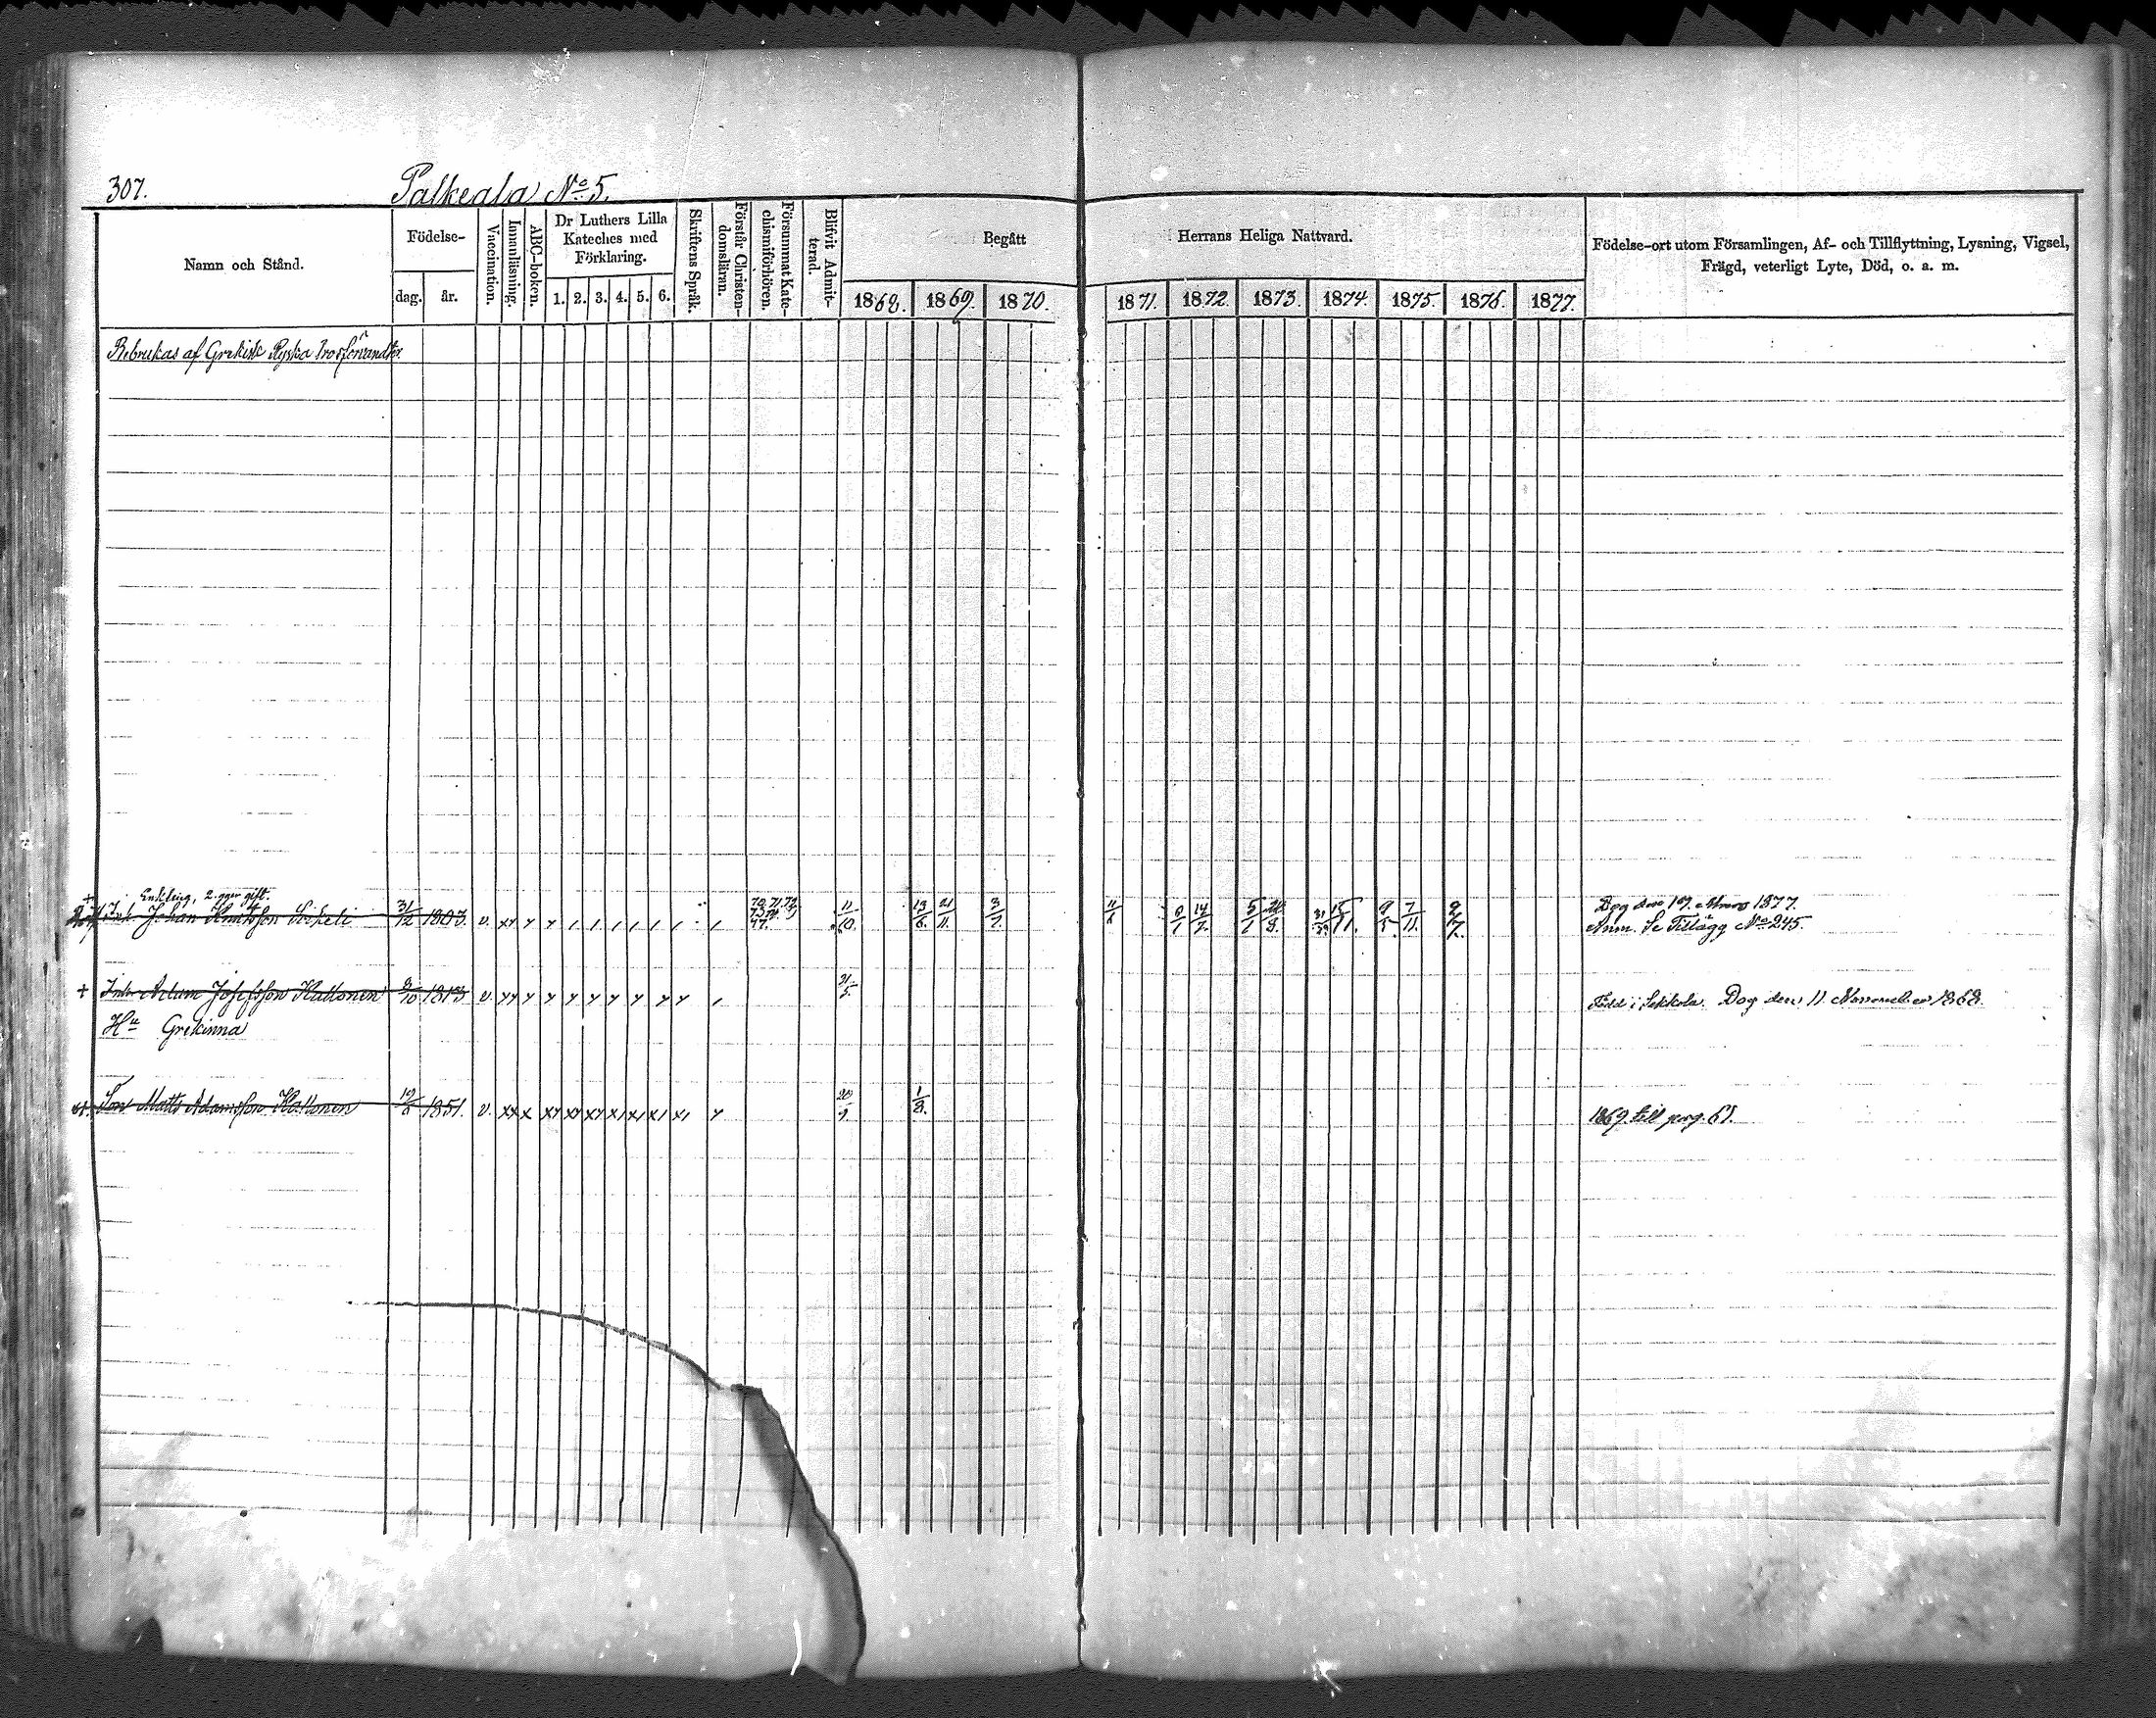 307. Palkeala No 5.
Namn och Stånd.
Födelse-
dag. år.
Vaccination.
Innanläsning.
ABC-boken.
Dr Luthers Lilla
Kateches med
Förklaring.
1. 2. 3. 4. 5. 6.
Skriftens Språk.
Förstår Christen-
domsläran.
Försummat Kate-
chismiförhören.
Blifvit Admit-
terad.
Begått Herrans Heliga Nattvard.
1868. 1869. 1870. 1871. 1872. 1873. 1874. 1875. 1876. 1877.
Födelse-ort utom Församlingen, Af- och Tillflyttning, Lysning, Vigsel,
Frägd, veterligt Lyte, Död, o. a. m.
Bebrukas af Grekisk Ryska Trosförvandter.
Enkling, 2 ggr gift.
Johan 31/12 1803. v. 11/10. 13/6. 21/11. 3/7. 14/7. 5/1 15/11. 9/5. 7/11. Dog den 19 Mars 1877.
Anm. Se Tillägg No 245.
+ Inh. Adam Josefsson Hallonen 9/10 1813 v. 31/5. Född i Sekkola. Dog den 11 November 1868.
Hu Grekinna
Son Matts Adamsson Hallonen 19/8 1851. v. 20/9. 1/8. 1869. till pag. 61.